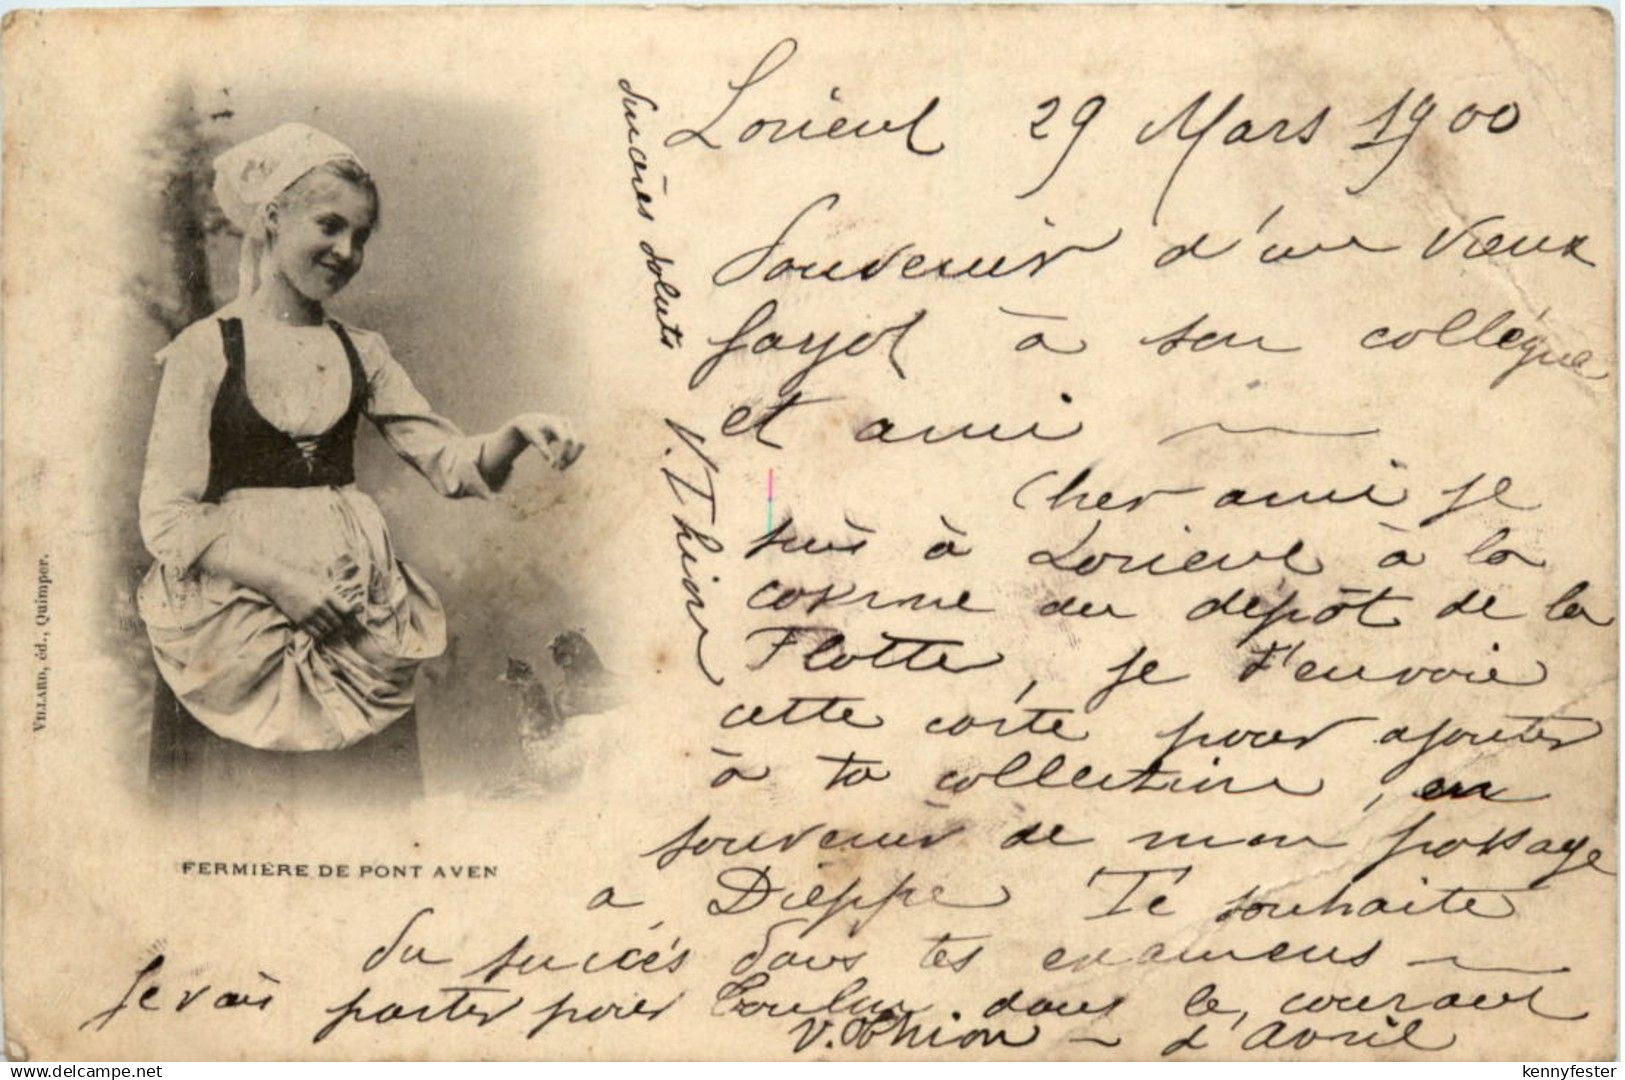 Lorient 29 Mars 1900
Souvenir d'un vieux
fayot à son collégue
et ami
Cher ami je
suis à Lorient à la
caserne du dépôt de la
Flotte, je t'envoie
cette carte pour ajouter
à ta collection, en
souvenir de mon passage
a Dieppe Te souhaite
du succés dans tes examens
Je vais partir pour Toulon dans le courant
V. Thion - d'Avril
Sincères saluts
V. Thion
FERMIÈRE DE PONT AVEN
VILLARD, éd., Quimper.
delcampe.net
kennyfester